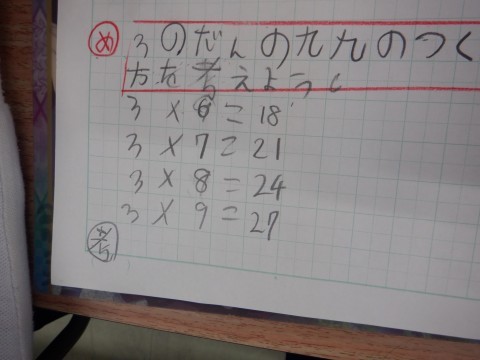 め 3のだんの九九のつく
方を考えよう。
3×6=18
3×7=21
3×8=24
3×9=27
考